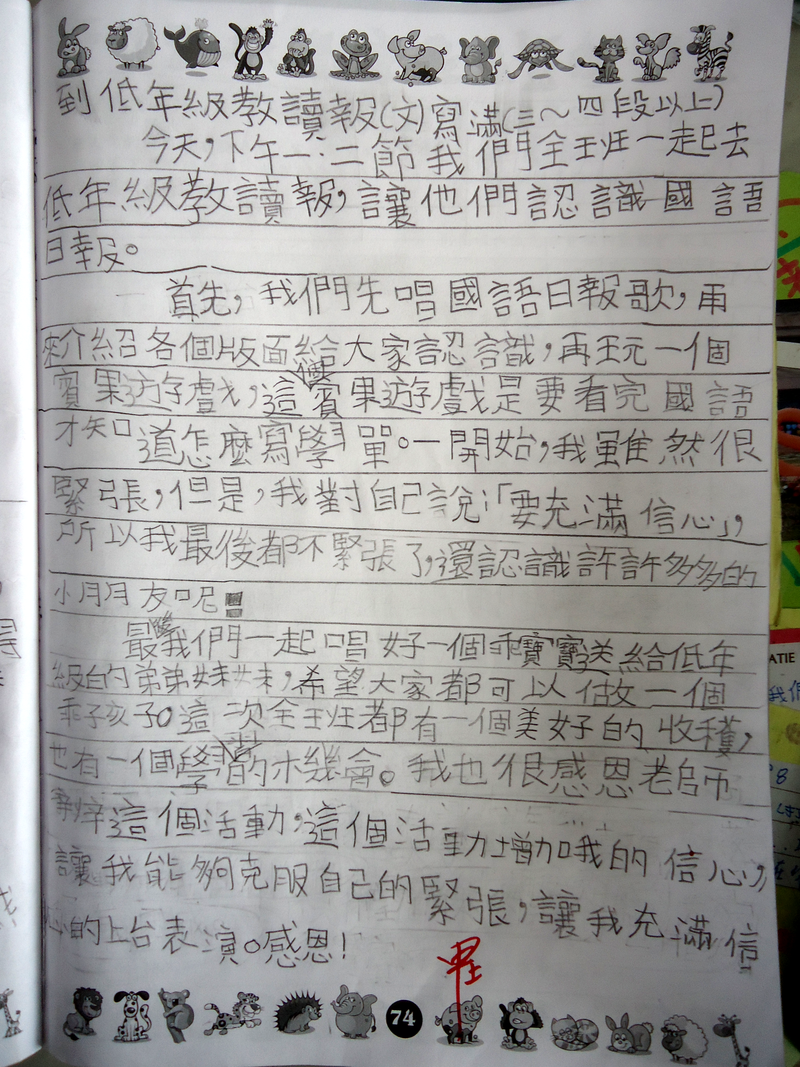 到低年級教讀報(文)寫滿(三～四段以上)
今天,下午一.二節我們全班一起去
低年級教讀報,讓他們認識國語
日報。
首先,我們先唱國語日報歌,再
來介紹各個版面給大家認識,再玩一個
賓果遊戲,這個賓果遊戲是要看完國語
才知道怎麼寫學單。一開始,我雖然很
緊張,但是,我對自己說:「要充滿信心」,
所以我最後都不緊張了,還認識許許多多的
小朋友呢!
最後我們一起唱好一個乖寶寶送給低年
級的弟弟妹妹,希望大家都可以做一個
乖孩子。這次全班都有一個美好的收穫,
也有一個學習的機會。我也很感恩老師
舉辦這個活動,這個活動增加我的信心,
讓我能夠克服自己的緊張,讓我充滿信
心的上台表演。感恩!
74
ATIE